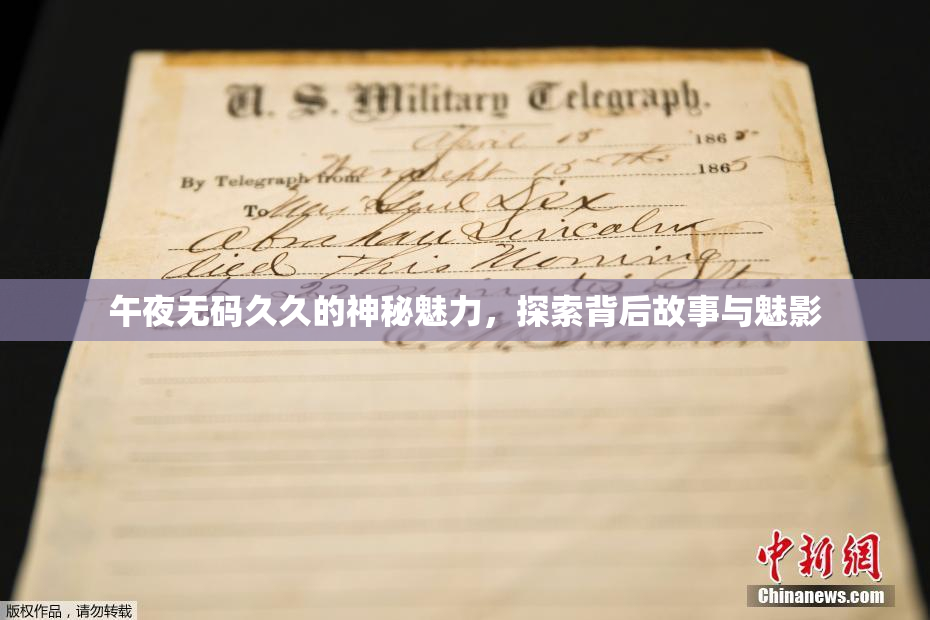 U. S. Military Telegraph.
April 15 1865
By Telegraph from War Dept 15th 1865
To Maj Genl Dix
Abraham Lincoln
died This Morning
at 22 minutes after
午夜无码久久的神秘魅力，探索背后故事与魅影
E. M. Stanton
中新网
Chinanews.com
版权作品，请勿转载